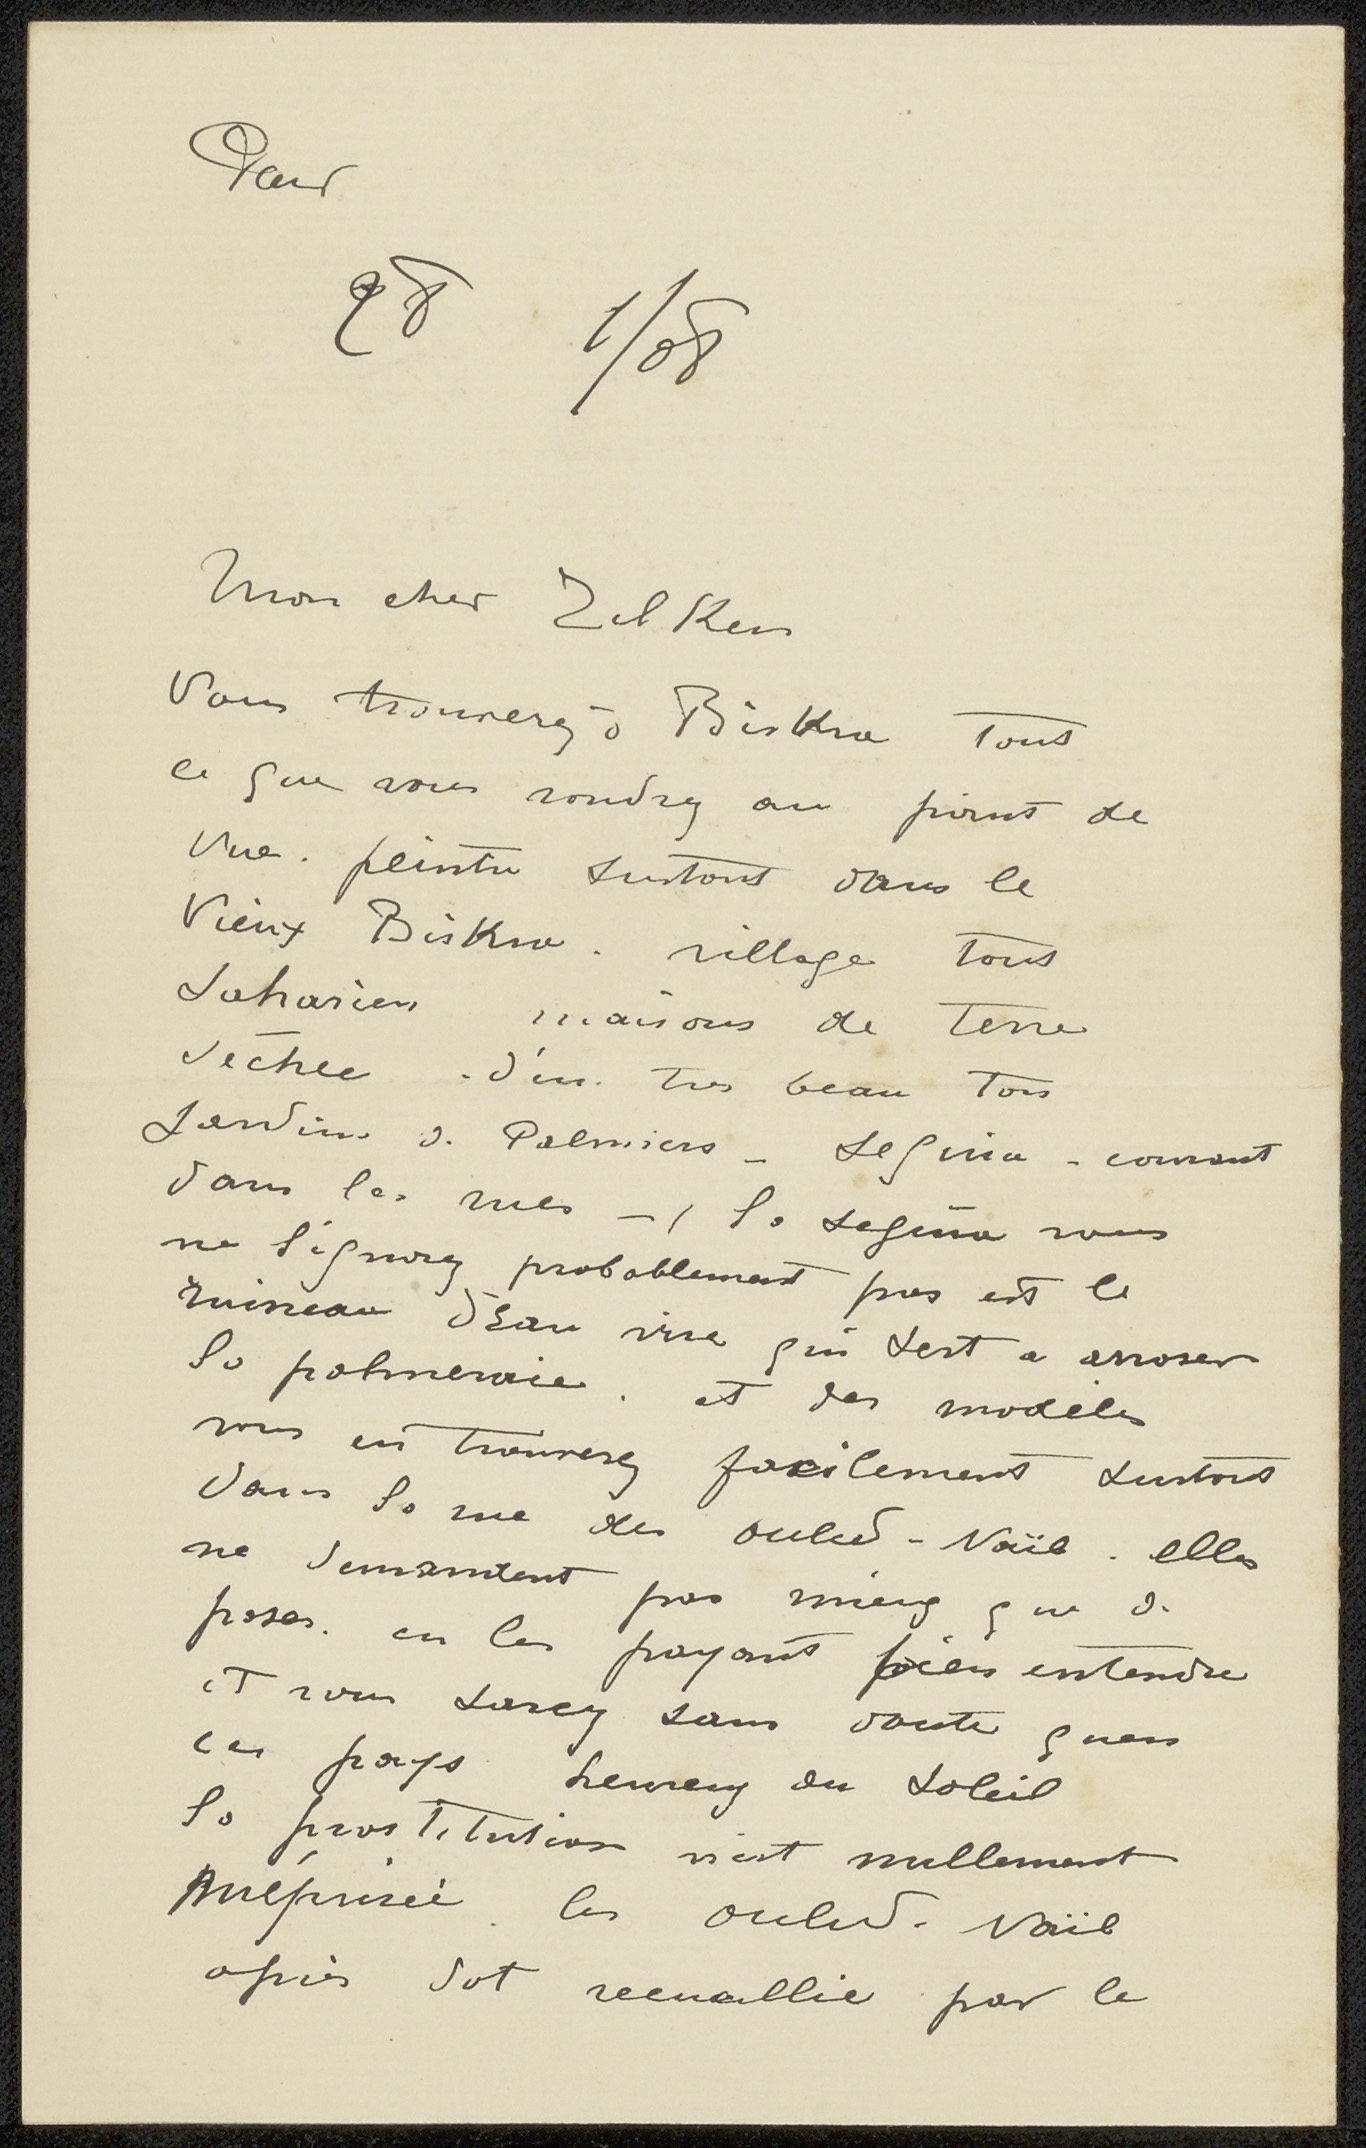 Paris
28 1/08
Mon cher Zilken
Vous trouverez à Biskra tout
ce que vous voudrez au point de
vue. peintre surtout dans le
Vieux Biskra. village tout
saharien maisons de terre
sechee. d'un tres beau ton
Jardins de Palmiers – seguia – courant
dans les rues – ( la seguia vous
ne l'ignorez probablement pas est le
ruisseau d'eau vive qui sert a arroser
la palmeraie. et des modèles
vous en trouverez facilement surtout
dans la rue des ouled-Naïl. elles
ne demandent pas mieux que de
poser. en les payant bien entendu
et vous savez sans doute qu'en
ces pays heureux du soleil
la prostitution n'est nullement
méprisée. les ouled. Naïl
après dot recueillie par le